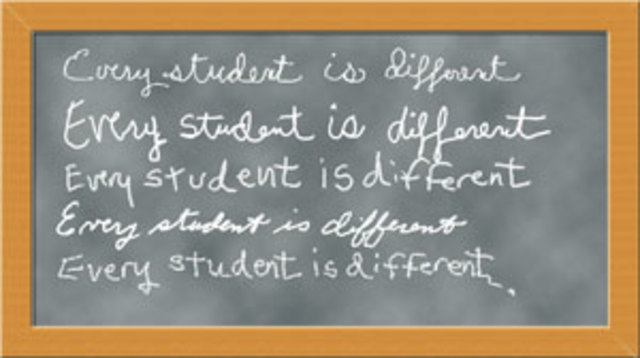 Every student is different
Every student is different
Every student is different
Every student is different
Every student is different.